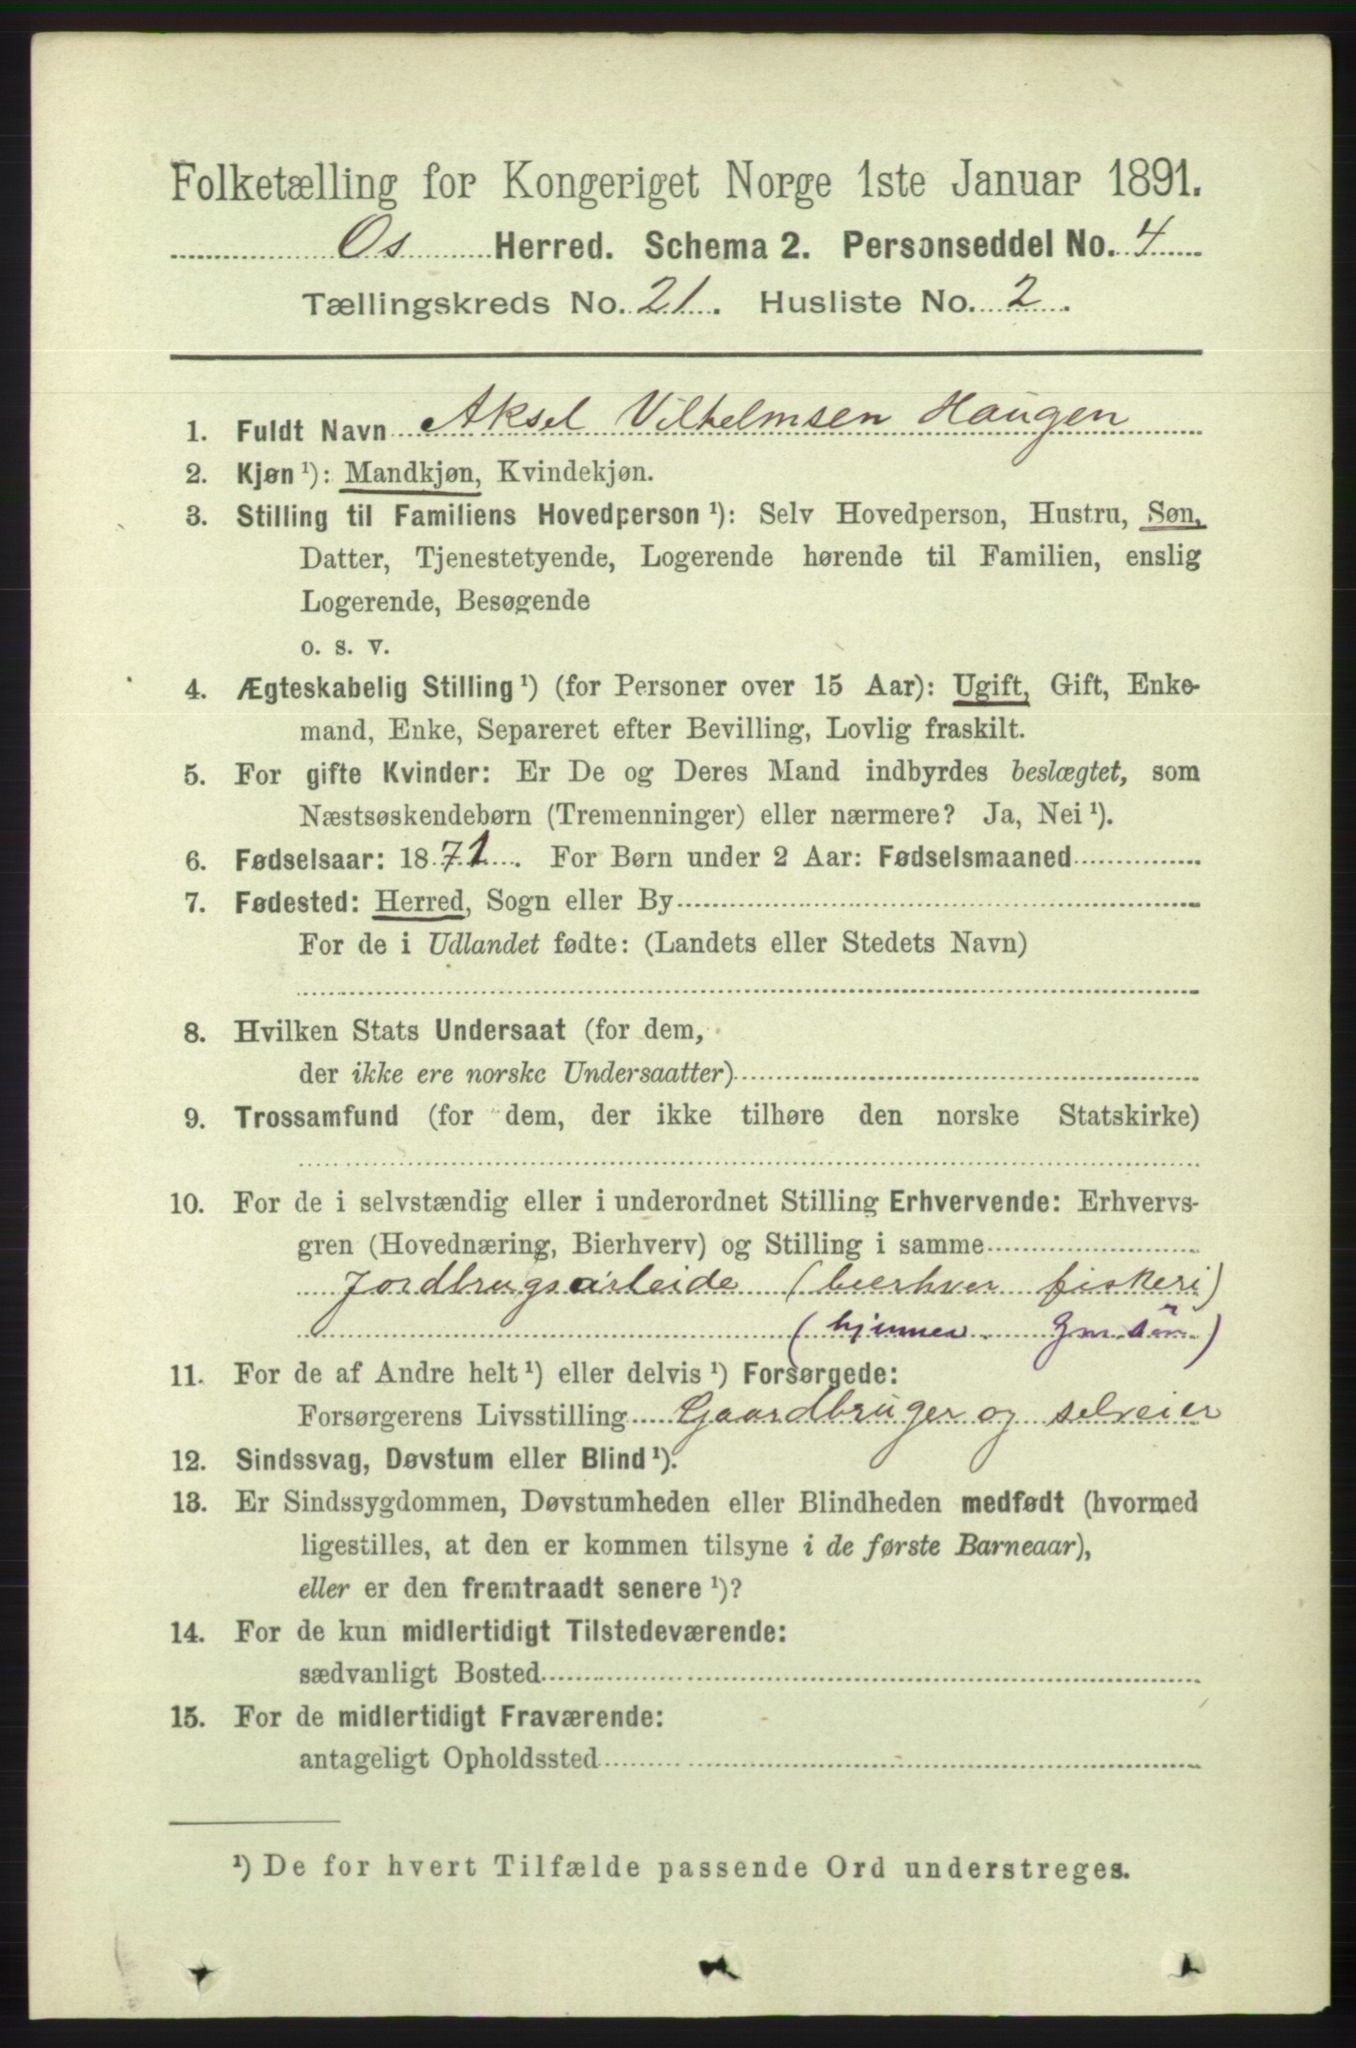 Folketælling for Kongeriget Norge 1ste Januar 1891.
Os Herred. Schema 2. Personseddel No. 4
Tællingskreds No. 21. Husliste No. 2.
1. Fuldt Navn Aksel Vilhelmsen Haugen
2. Kjøn ¹): Mandkjøn, Kvindekjøn.
3. Stilling til Familiens Hovedperson ¹): Selv Hovedperson, Hustru, Søn,
Datter, Tjenestetyende, Logerende hørende til Familien, enslig
Logerende, Besøgende
o. s. v.
4. Ægteskabelig Stilling ¹) (for Personer over 15 Aar): Ugift, Gift, Enke-
mand, Enke, Separeret efter Bevilling, Lovlig fraskilt.
5. For gifte Kvinder: Er De og Deres Mand indbyrdes beslægtet, som
Næstsøskendebørn (Tremenninger) eller nærmere? Ja, Nei ¹).
6. Fødselsaar: 1871. For Børn under 2 Aar: Fødselsmaaned
7. Fødested: Herred, Sogn eller By
For de i Udlandet fødte: (Landets eller Stedets Navn)
8. Hvilken Stats Undersaat (for dem,
der ikke ere norske Undersaatter)
9. Trossamfund (for dem, der ikke tilhøre den norske Statskirke)
10. For de i selvstændig eller i underordnet Stilling Erhvervende: Erhvervs-
gren (Hovednæring, Bierhverv) og Stilling i samme
Jordbrugsarbeide (bierhver fiskeri)
(hjemme Gm. søn)
11. For de af Andre helt ¹) eller delvis ¹) Forsørgede:
Forsørgerens Livsstilling Gaardbruger og selveier
12. Sindssvag, Døvstum eller Blind ¹).
13. Er Sindssygdommen, Døvstumheden eller Blindheden medfødt (hvormed
ligestilles, at den er kommen tilsyne i de første Barneaar),
eller er den fremtraadt senere ¹)?
14. For de kun midlertidigt Tilstedeværende:
sædvanligt Bosted
15. For de midlertidigt Fraværende:
antageligt Opholdssted
¹) De for hvert Tilfælde passende Ord understreges.